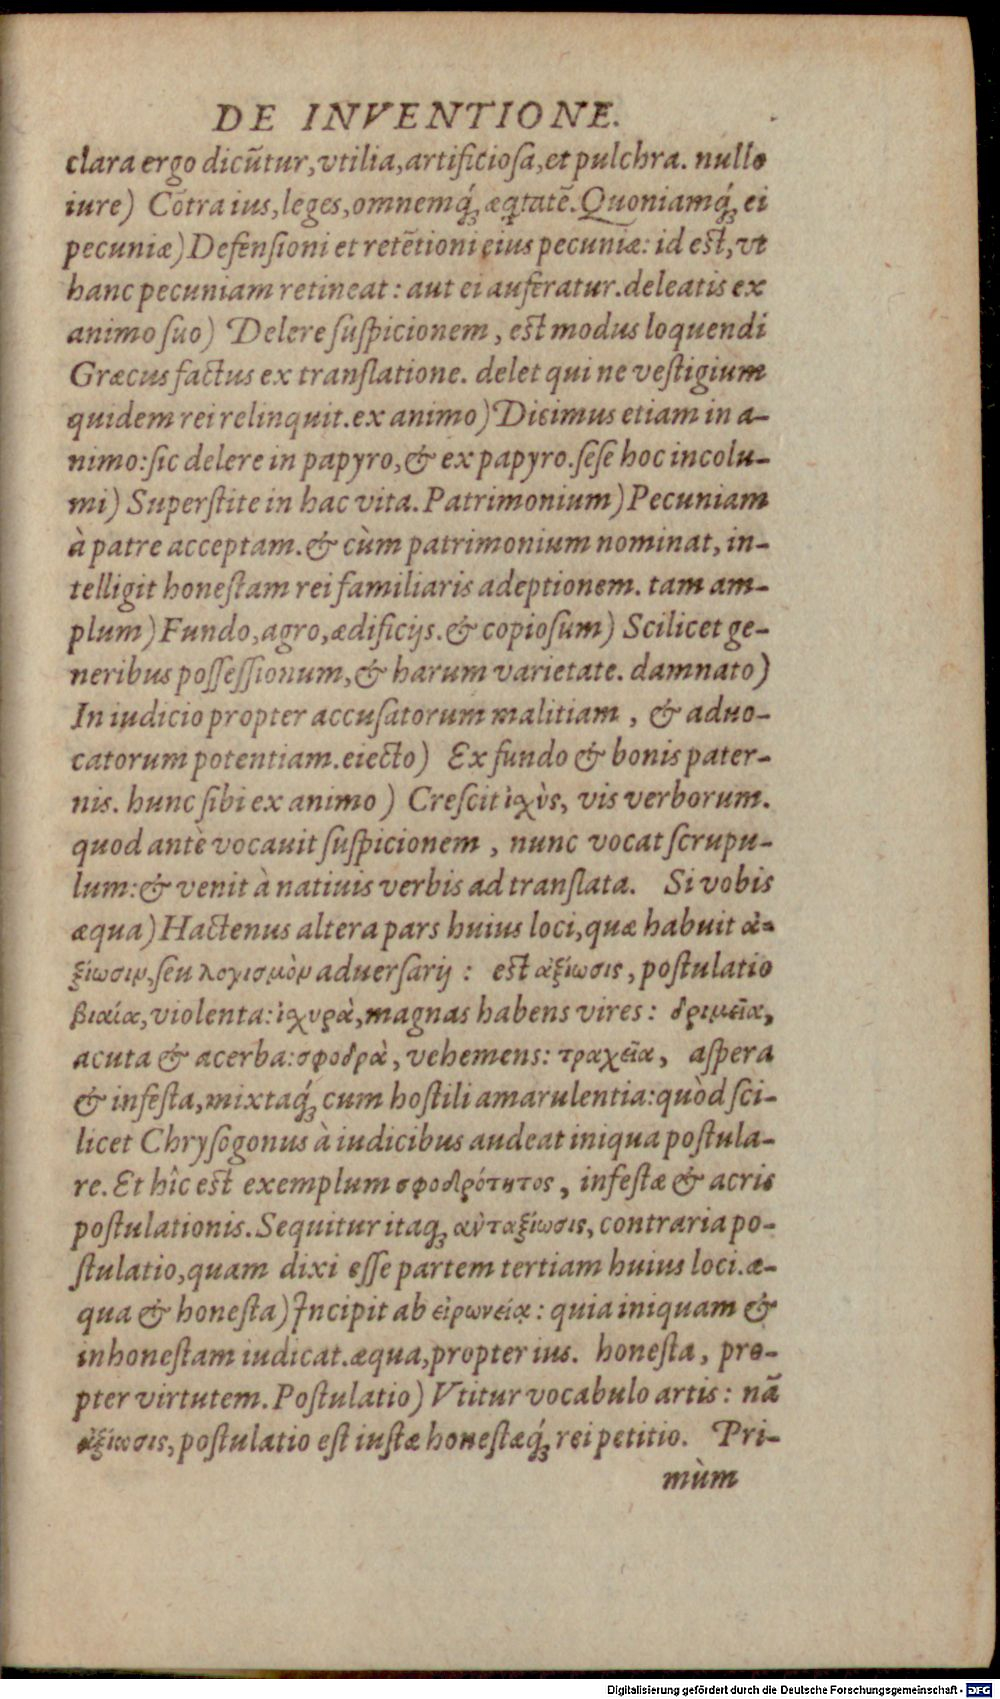 DE INVENTIONE.
clara ergo dicũtur, vtilia, artificiosa, et pulchra. nullo
iure) Cõtra ius, leges, omnemq́ꝫ æq̃tatẽ. Quoniamq́ꝫ ei
pecuniæ) Defensioni et retẽtioni eius pecuniæ: id est, vt
hanc pecuniam retineat: aut ei auferatur. deleatis ex
animo suo) Delere suspicionem, est modus loquendi
Græcus factus ex translatione. delet qui ne vestigium
quidem rei relinquit. ex animo) Dicimus etiam in a-
nimo: sic delere in papyro, & ex papyro. sese hoc incolu-
mi) Superstite in hac vita. Patrimonium) Pecuniam
à patre acceptam. & cùm patrimonium nominat, in-
telligit honestam rei familiaris adeptionem. tam am-
plum) Fundo, agro, ædificijs. & copiosum) Scilicet ge-
neribus possessionum, & harum varietate. damnato)
In iudicio propter accusatorum malitiam, & aduo-
catorum potentiam. eiecto) Ex fundo & bonis pater-
nis. hunc sibi ex animo) Crescit ἰχὺς, vis verborum.
quod antè vocauit suspicionem, nunc vocat scrupu-
lum: & venit à natiuis verbis ad translata. Si vobis
æqua) Hactenus altera pars huius loci, quæ habuit ἀ-
ξίωσιν, seu λογισμὸν aduersarij: est ἀξίωσις, postulatio
βιαία, violenta: ἰχυρὰ, magnas habens vires: δριμεῖα,
acuta & acerba: σφοδρὰ, vehemens: τραχεῖα, aspera
& infesta, mixtaq́ꝫ cum hostili amarulentia: quòd sci-
licet Chrysogonus à iudicibus audeat iniqua postula-
re. Et hîc est exemplum σφοδρότητος, infestæ & acris
postulationis. Sequitur itaqꝫ ἀνταξίωσις, contraria po-
stulatio, quam dixi esse partem tertiam huius loci. æ-
qua & honesta) Incipit ab εἰρωνείᾳ: quia iniquam &
inhonestam iudicat. æqua, propter ius. honesta, pro-
pter virtutem. Postulatio) Vtitur vocabulo artis: nã
ἀξίωσις, postulatio est iustæ honestæq́ꝫ rei petitio. Pri-
mùm
Digitalisierung gefördert durch die Deutsche Forschungsgemeinschaft - DFG